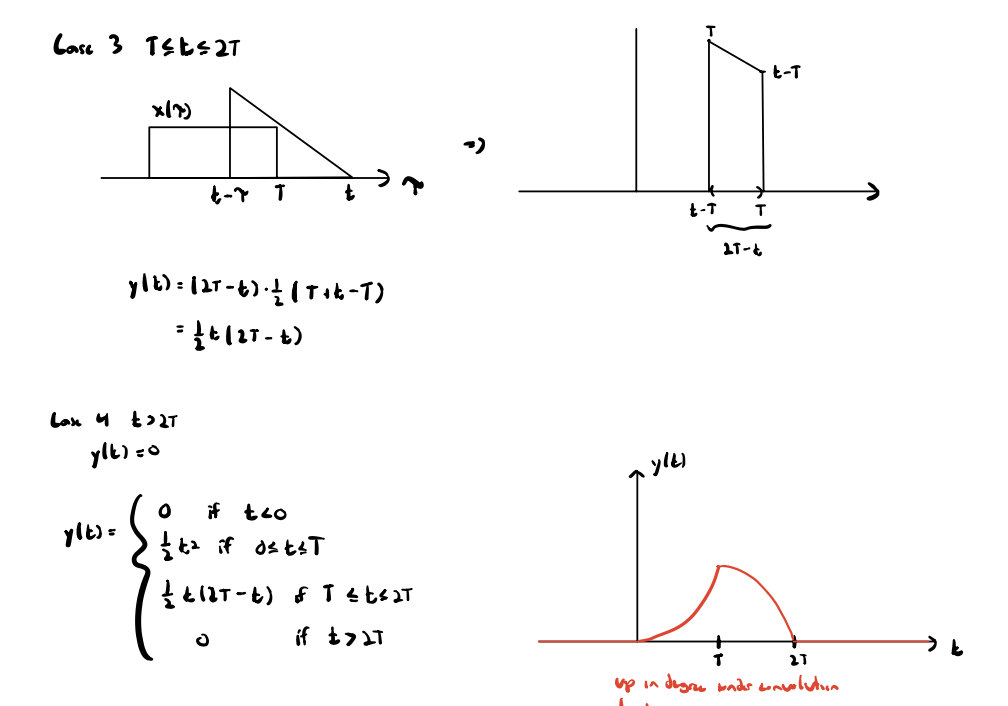 Case 3 T≤t≤2T
x(τ)
t-τ T t τ
=>
T
t-T
t-T T
2T-t
y(t) = (2T-t)·1/2 (T+t-T)
= 1/2 t(2T-t)
Case 4 t>2T
y(t)=0
y(t)=
0 if t<0
1/2 t² if 0≤t≤T
1/2 t(2T-t) if T≤t≤2T
0 if t>2T
y(t)
T 2T t
up in degree under convolution